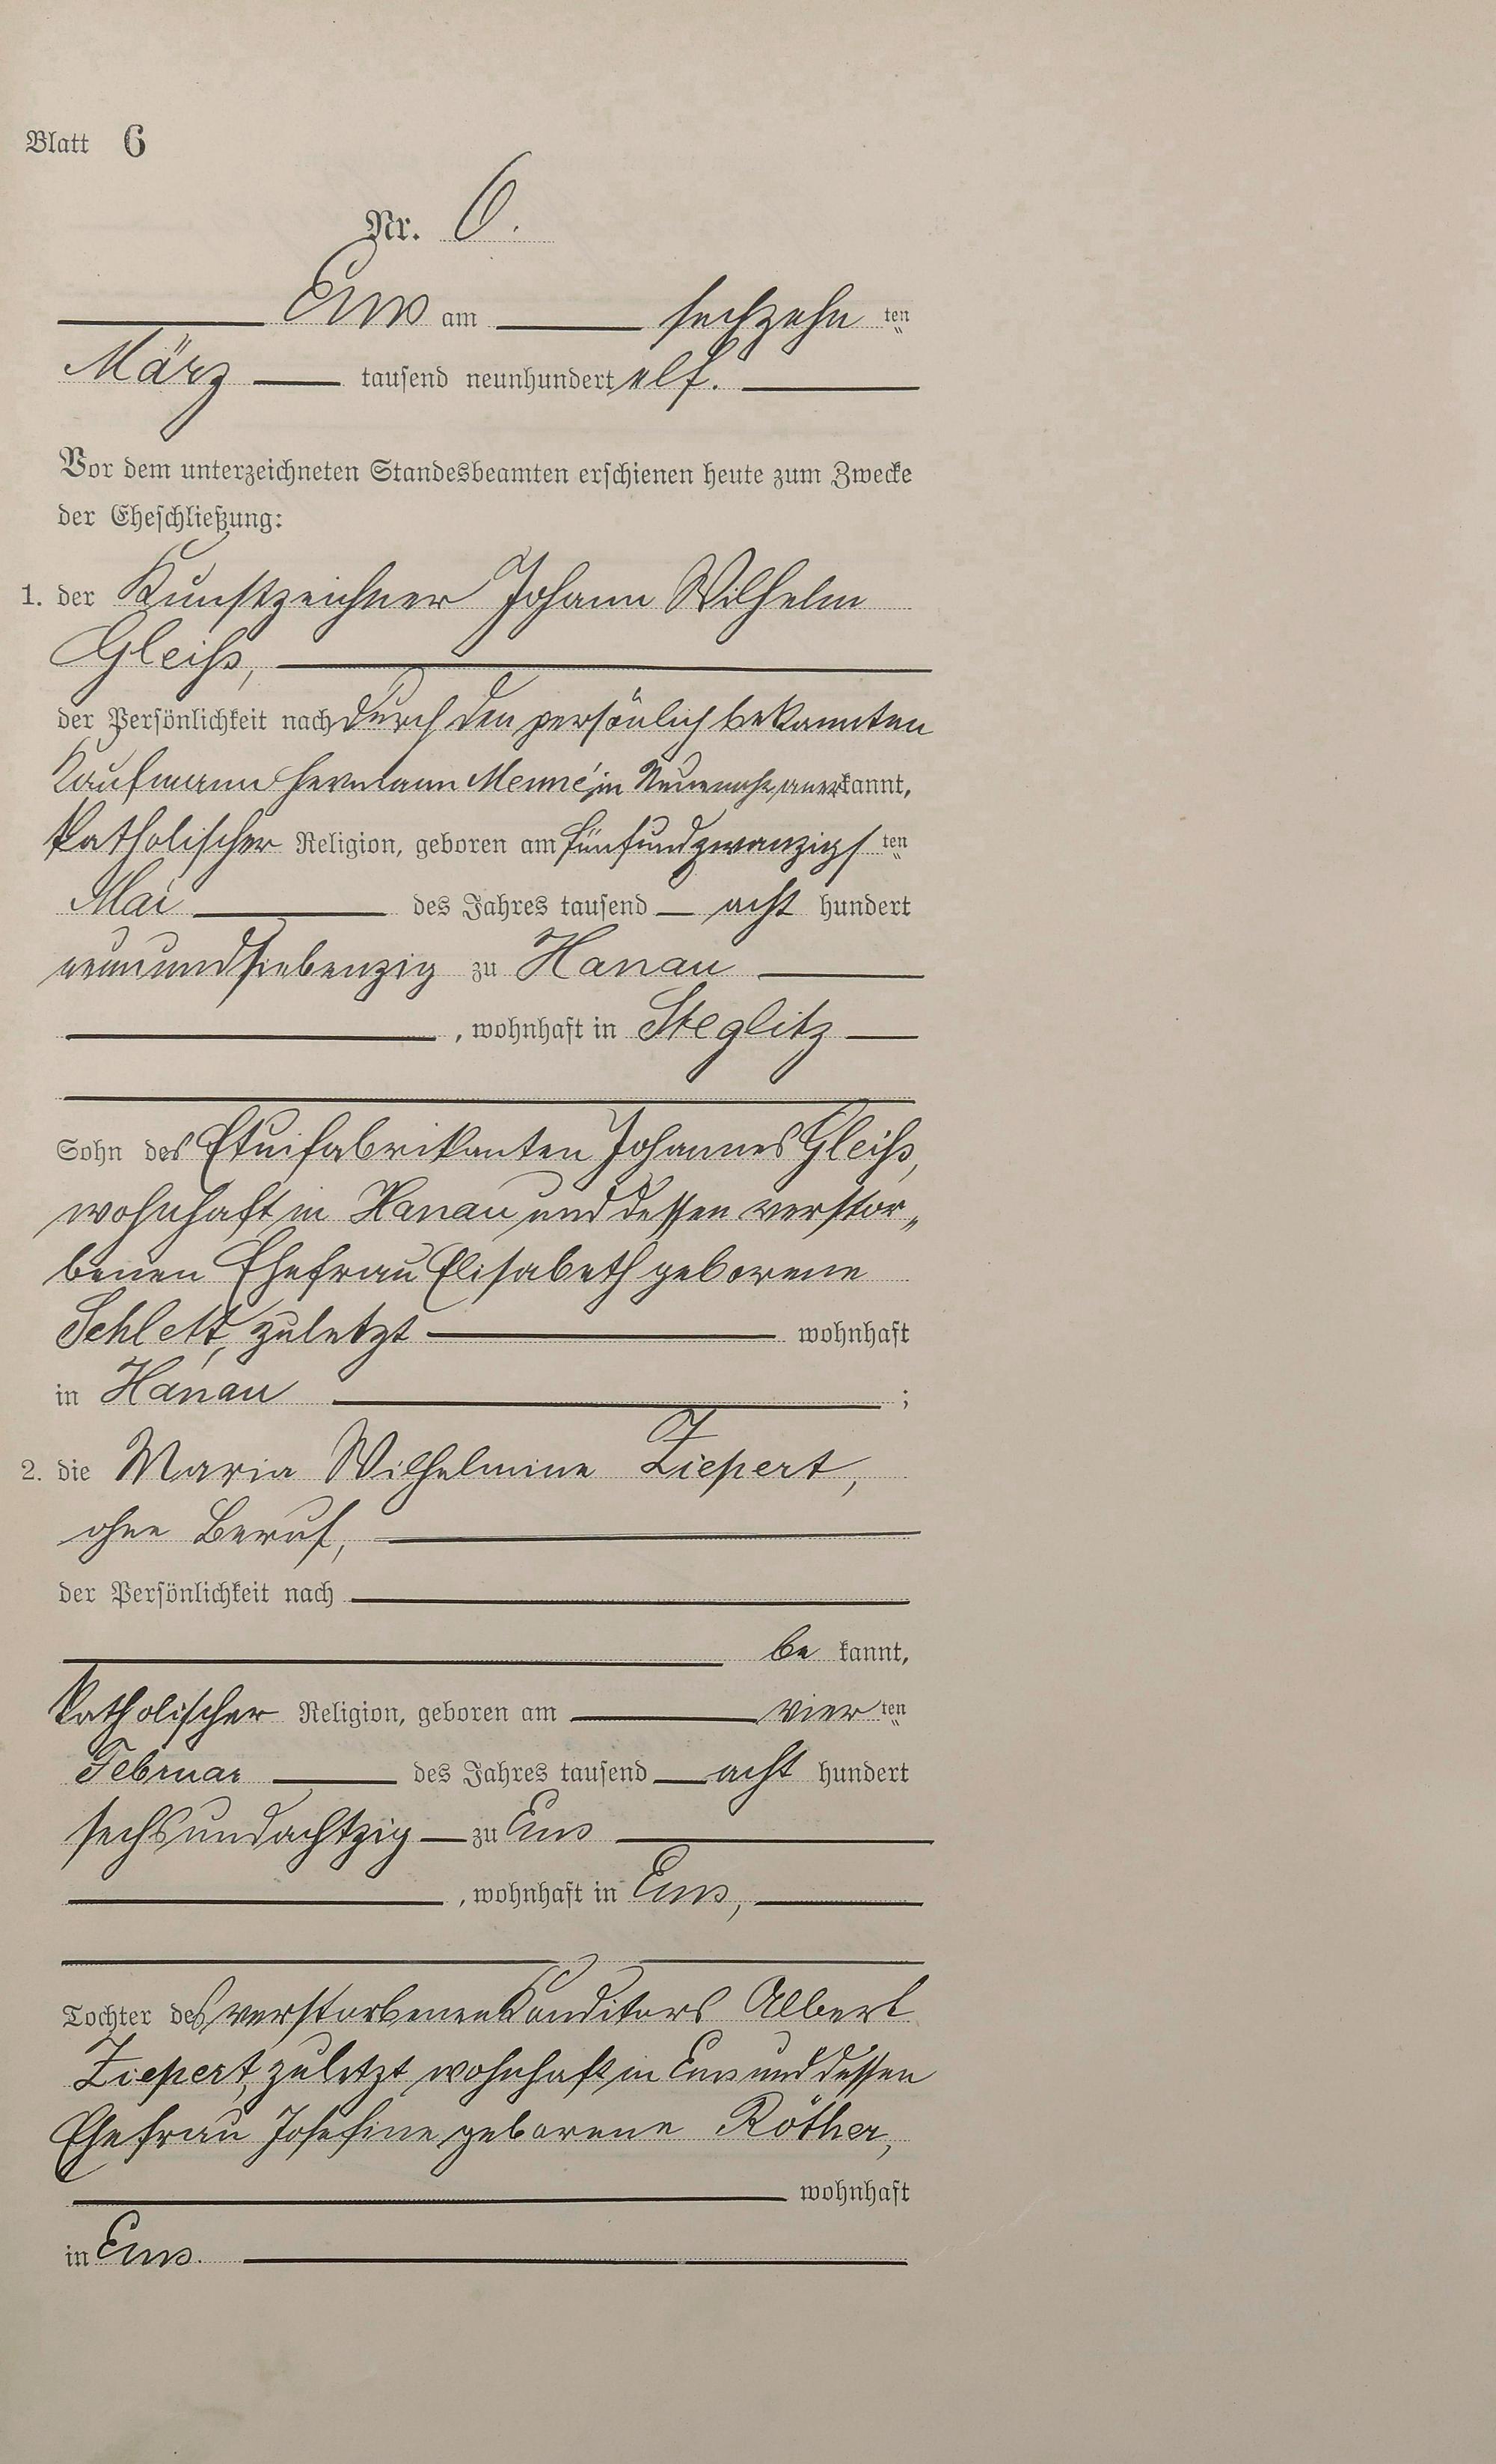 Blatt 6
Nr. 6.
Ems am sechzehn ten
März tausend neunhundert elf.
Vor dem unterzeichneten Standesbeamten erschienen heute zum Zwecke
der Eheschließung:
1. der Kunstzeichner Johann Wilhelm
Gleiß,
der Persönlichkeit nach durch den persönlich bekannten
Kaufmann Hermann Menné, in Neuenahr, anerkannt,
katholischer Religion, geboren am fünfundzwanzigs ten
Mai des Jahres tausend acht hundert
neunundsiebenzig zu Hanau
, wohnhaft in Steglitz
Sohn des Etuifabrikanten Johannes Gleiß,
wohnhaft in Hanau und dessen verstor„
benen Ehefrau Elisabeth geborene
Schlett, zuletzt wohnhaft
in Hanau ;
2. die Maria Wilhelmine Ziepert,
ohne Beruf,
der Persönlichkeit nach
be kannt,
katholischer Religion, geboren am vier ten
Februar des Jahres tausend acht hundert
sechsundachtzig zu Ems
, wohnhaft in Ems,
Tochter des verstorbenen Konditors Albert
Ziepert, zuletzt wohnhaft in Ems und dessen
Ehefrau Josefine geborene Röther,
wohnhaft
in Ems.